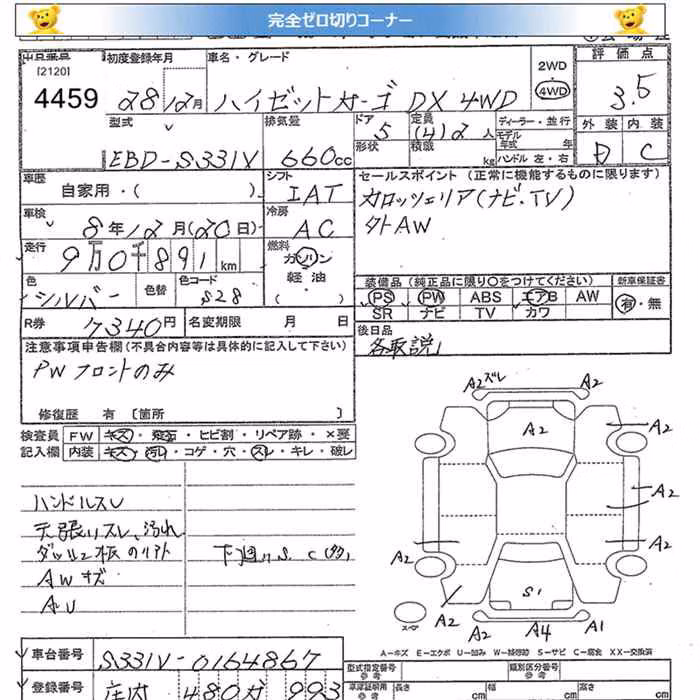 完全ゼロ切りコーナー
出品番号 初度登録年月 車名・グレード 2WD 4WD 評価点
[2120]
4459 28 12月 ハイゼットカーゴ DX 4WD 3.5
型式 排気量 ドア 5 定員 (4)12人 ディーラー・並行
モデル年式 年
EBD-S331V 660cc 形状 積載 kg ハンドル 左・右
外装 内装
D C
車歴 シフト セールスポイント (正常に機能するものに限ります)
自家用・( ). IAT カロッツェリア(ナビ・TV)
車検 冷房 外AW
8年12月(20日) AC
走行 燃料
9万0千891km ガソリン
軽油
( )
色 色替 色コード
シルバー S28
装備品 (純正品に限り○をつけてください) 新車保証書
PS PW ABS エアB AW 有・無
SR ナビ TV カワ
R券 7340円 名変期限 月 日
後日品
各取説
注意事項申告欄(不具合内容等は具体的に記入して下さい)
PWフロントのみ
修復歴 有 〔箇所 〕
検査員 FW キズ・飛石・ヒビ割・リペア跡・×要
記入欄 内装 キズ・汚れ・コゲ・穴・スレ・キレ・破レ
ハンドルスレ
天張りスレ、汚れ
下廻りS C(多)
AWキズ
AU
A2ズレ A2
A2 A2
A2
A2 A2
A2 S1
A2 A2 A4 A1
スペア
A-キズ E-エクボ U-凹み W-補修跡 S-サビ C-腐食 XX-交換済
車台番号 S331V-0164867
型式指定番号 参考 類別区分番号 参考
登録番号 庄内 480 993
車庫証明用 参考 長さ cm 幅 cm 高さ cm